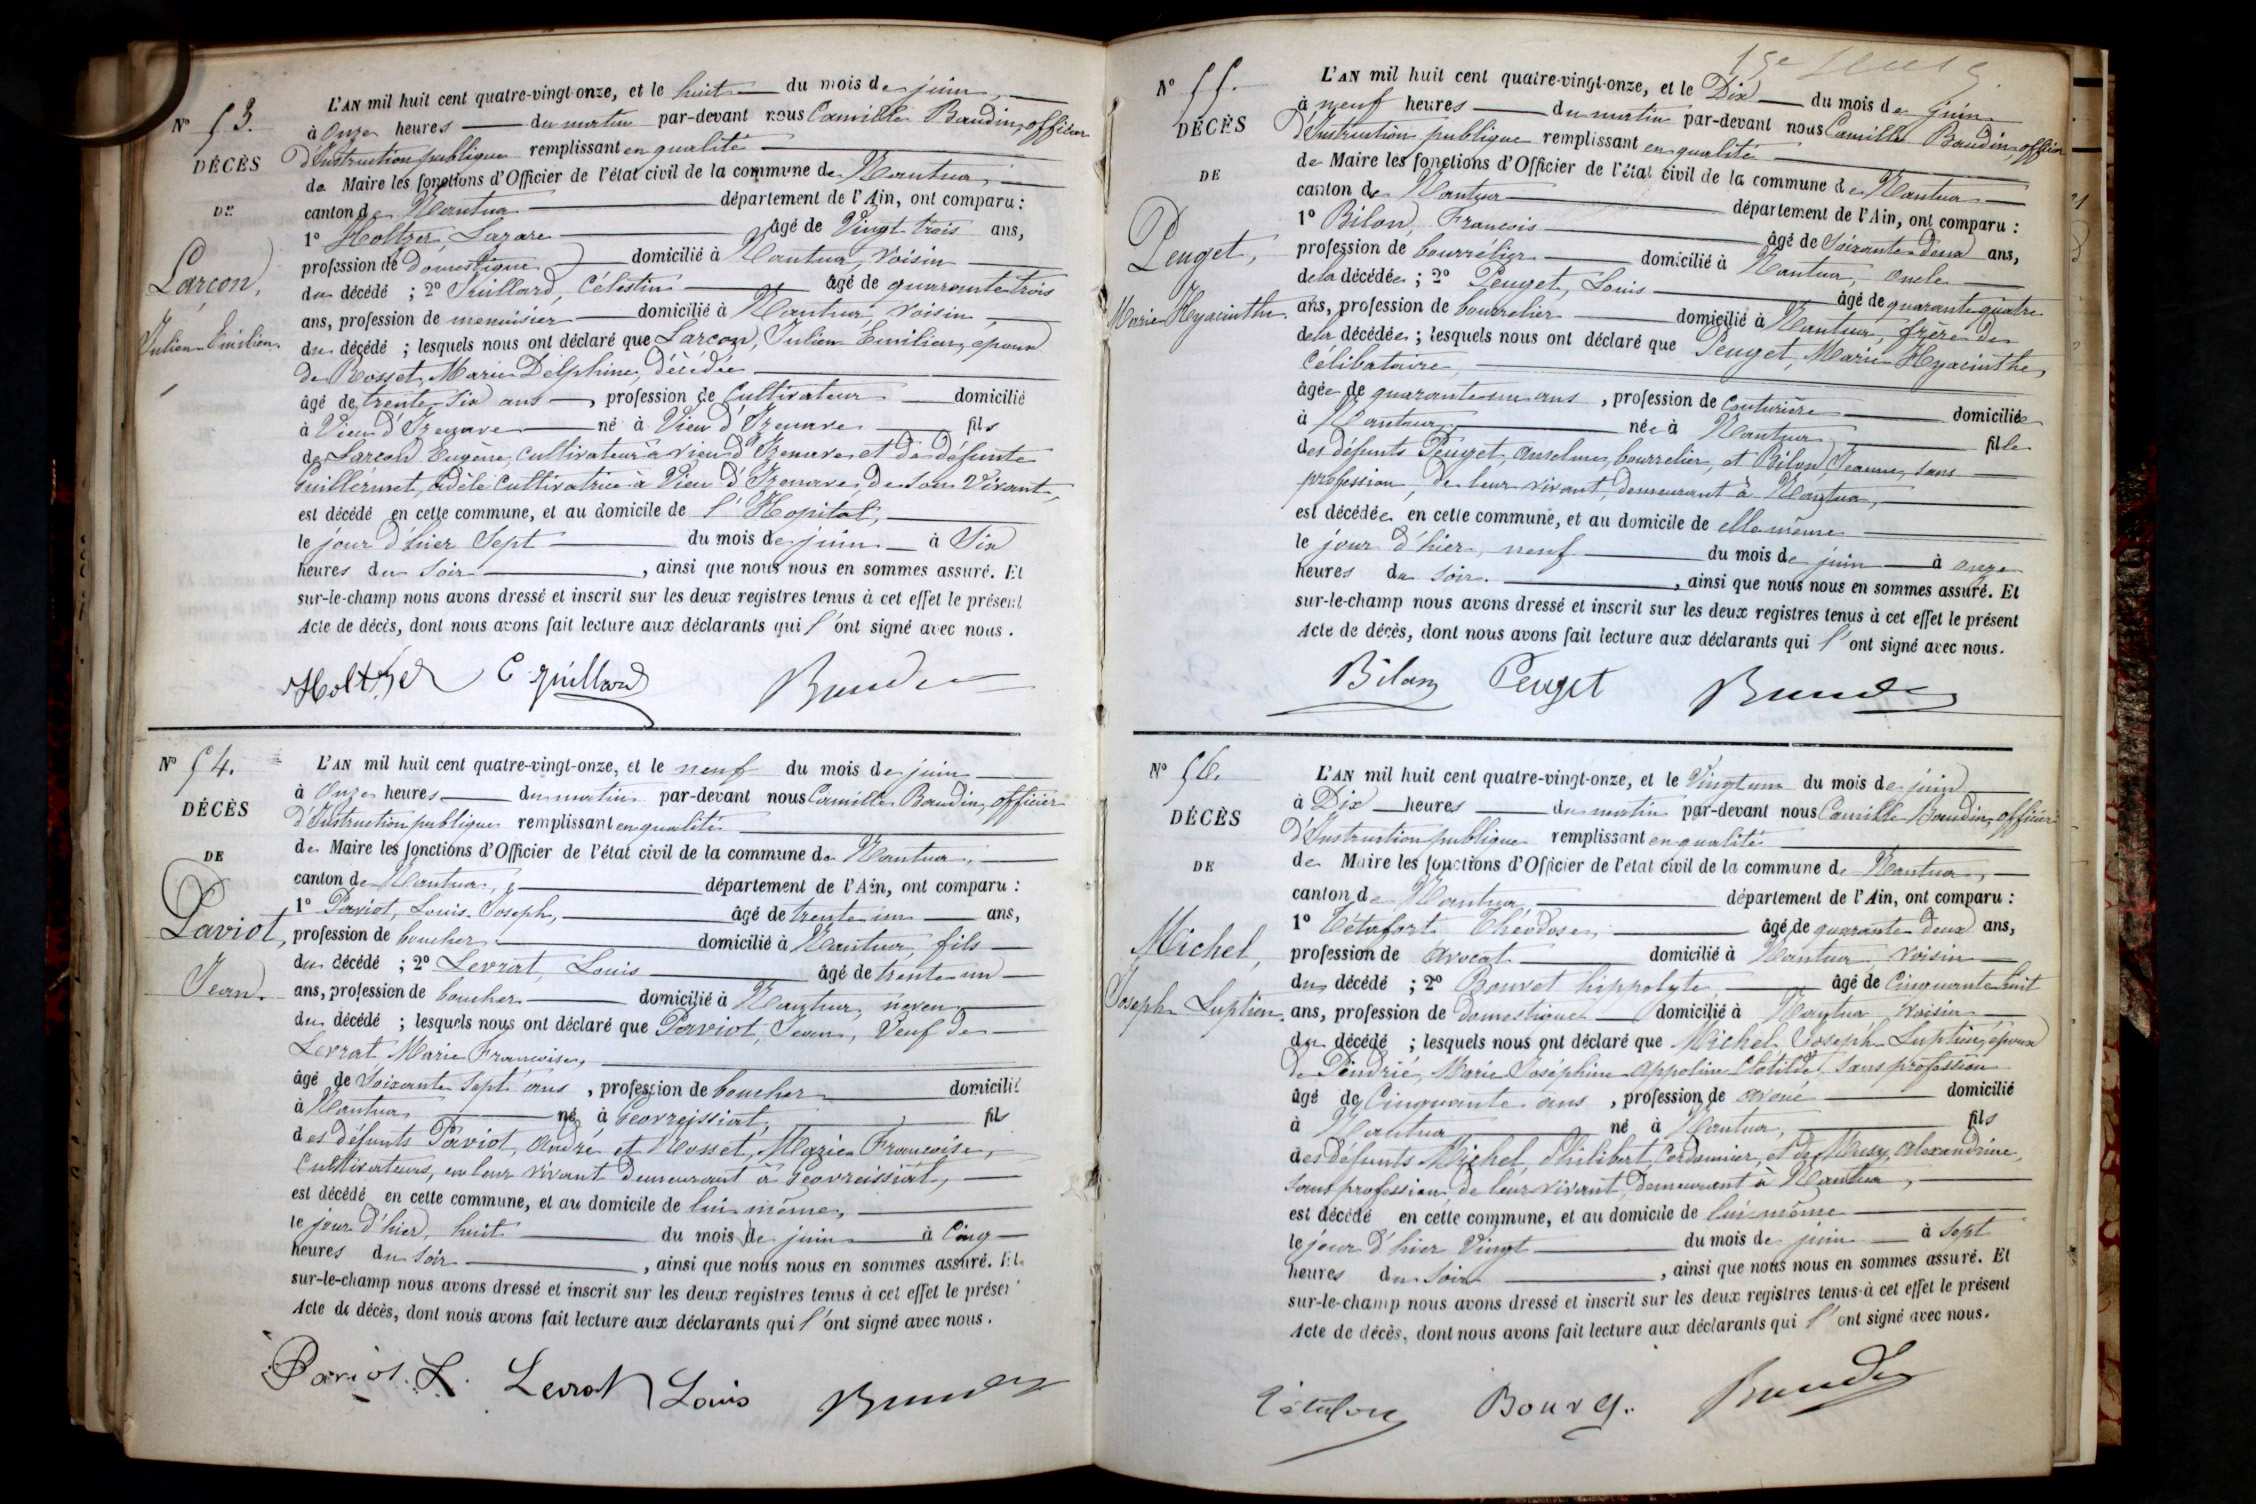 N° 53.
DÉCÈS
DE
Larçon,
Julien Emilien
L'AN mil huit cent quatre-vingt-onze, et le huit du mois de juin
à Onze heures du matin par-devant nous Camille Baudin, officier
d'Instruction publique remplissant en qualité
de Maire les fonctions d'Officier de l'état civil de la commune de Nantua,
canton de Nantua département de l'Ain, ont comparu :
1° Holtzer, Lazare âgé de Vingt trois ans,
profession de domestique domicilié à Nantua, voisin
du décédé ; 2° Juillard, Célestin âgé de quarante trois
ans, profession de menuisier domicilié à Nantua, voisin,
du décédé ; lesquels nous ont déclaré que Larçon, Julien Emilien, époux
de Rosset, Marie Delphine, décédée
âgé de trente six ans, profession de Cultivateur domicilié
à Vieu d'Izenave né à Vieu d'Izenave fils
de Larçon Eugène, Cultivateur à Vieu d'Izenave et de défunte
Guillermet, Adèle Cultivatrice à Vieu d'Izenave, de son Vivant,
est décédé en cette commune, et au domicile de l'Hopital,
le jour d'hier Sept du mois de juin à Six
heures du Soir, ainsi que nous nous en sommes assuré. Et
sur-le-champ nous avons dressé et inscrit sur les deux registres tenus à cet effet le présent
Acte de décès, dont nous avons fait lecture aux déclarants qui l'ont signé avec nous.
Holtzer C. Juillard Baudin
N° 54.
DÉCÈS
DE
Paviot,
Jean.
L'AN mil huit cent quatre-vingt-onze, et le neuf du mois de juin
à Onze heures du matin par-devant nous Camille Baudin, officier
d'Instruction publique remplissant en qualité
de Maire les fonctions d'Officier de l'état civil de la commune de Nantua,
canton de Nantua, département de l'Ain, ont comparu :
1° Paviot, Louis Joseph, âgé de trente un ans,
profession de boucher domicilié à Nantua, fils
du décédé ; 2° Levrat, Louis âgé de trente un
ans, profession de boucher domicilié à Nantua, neveu
du décédé ; lesquels nous ont déclaré que Paviot, Jean, Veuf de
Levrat Marie Françoise,
âgé de Soixante Sept ans, profession de boucher domicilié
à Nantua né à Géovreissiat, fils
des défunts Paviot, André et Rosset, Marie Françoise,
Cultivateurs, en leur vivant demeurant à Géovreissiat,
est décédé en cette commune, et au domicile de lui même,
le jour d'hier, huit du mois de juin à Cinq
heures du Soir, ainsi que nous nous en sommes assuré. Et
sur-le-champ nous avons dressé et inscrit sur les deux registres tenus à cet effet le présent
Acte de décès, dont nous avons fait lecture aux déclarants qui l'ont signé avec nous.
Paviot. L. Levrat Louis Baudin
N° 55.
DÉCÈS
DE
Peuget,
Marie Hyacinthe
L'AN mil huit cent quatre-vingt-onze, et le Dix du mois de juin
à neuf heures du matin par-devant nous Camille Baudin, officier
d'Instruction publique remplissant en qualité
de Maire les fonctions d'Officier de l'état civil de la commune de Nantua
canton de Nantua département de l'Ain, ont comparu :
1° Bilon, François âgé de Soixante deux ans,
profession de bourrelier domicilié à Nantua, oncle
de la décédée ; 2° Peuget, Louis âgé de quarante quatre
ans, profession de bourrelier domicilié à Nantua, frère de
de la décédée ; lesquels nous ont déclaré que Peuget, Marie Hyacinthe,
Célibataire,
âgée de quarante un ans, profession de Couturière domiciliée
à Nantua née à Nantua fille
des défunts Peuget, Anselme, bourrelier, et Bilon, Jeanne, sans
profession, de leur vivant, demeurant à Nantua,
est décédée en cette commune, et au domicile de elle même
le jour d'hier, neuf du mois de juin à onze
heures du soir, ainsi que nous nous en sommes assuré. Et
sur-le-champ nous avons dressé et inscrit sur les deux registres tenus à cet effet le présent
Acte de décès, dont nous avons fait lecture aux déclarants qui l'ont signé avec nous.
Bilon Peuget Baudin
N° 56.
DÉCÈS
DE
Michel,
Joseph Luptien.
L'AN mil huit cent quatre-vingt-onze, et le Vingt un du mois de juin
à Dix heures du matin par-devant nous Camille Baudin, officier
d'Instruction publique remplissant en qualité
de Maire les fonctions d'Officier de l'état civil de la commune de Nantua,
canton de Nantua département de l'Ain, ont comparu :
1° Tétafort Théodose, âgé de quarante deux ans,
profession de Avocat domicilié à Nantua, voisin
du décédé ; 2° Bouvet hippolyte âgé de Cinquante huit
ans, profession de domestique domicilié à Nantua voisin
du décédé ; lesquels nous ont déclaré que Michel, Joseph Luptien, époux
de Pendrié, Marie Joséphine Appoline Clotilde, sans profession
âgé de Cinquante ans, profession de avoué domicilié
à Nantua né à Nantua, fils
des défunts Michel, Philibert, Cordonnier, et de Alexandrine,
sans profession de leur vivant, demeurant à Nantua,
est décédé en cette commune, et au domicile de lui même
le jour d'hier Vingt du mois de juin à Sept
heures du Soir, ainsi que nous nous en sommes assuré. Et
sur-le-champ nous avons dressé et inscrit sur les deux registres tenus à cet effet le présent
Acte de décès, dont nous avons fait lecture aux déclarants qui l'ont signé avec nous.
Bouvet. Baudin